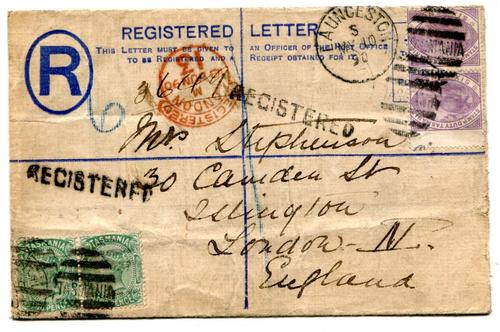 REGISTERED LETTER
THIS LETTER MUST BE GIVEN TO AN OFFICER OF THE POST OFFICE
TO BE REGISTERED AND A RECEIPT OBTAINED FOR IT.
R
LAUNCESTON
S
10
90
REGISTERED
LONDON
REGISTERED
6
Mrs Stephenson
REGISTERED
30 Camden St
Islington
London N.
England
TASMANIA
TASMANIA